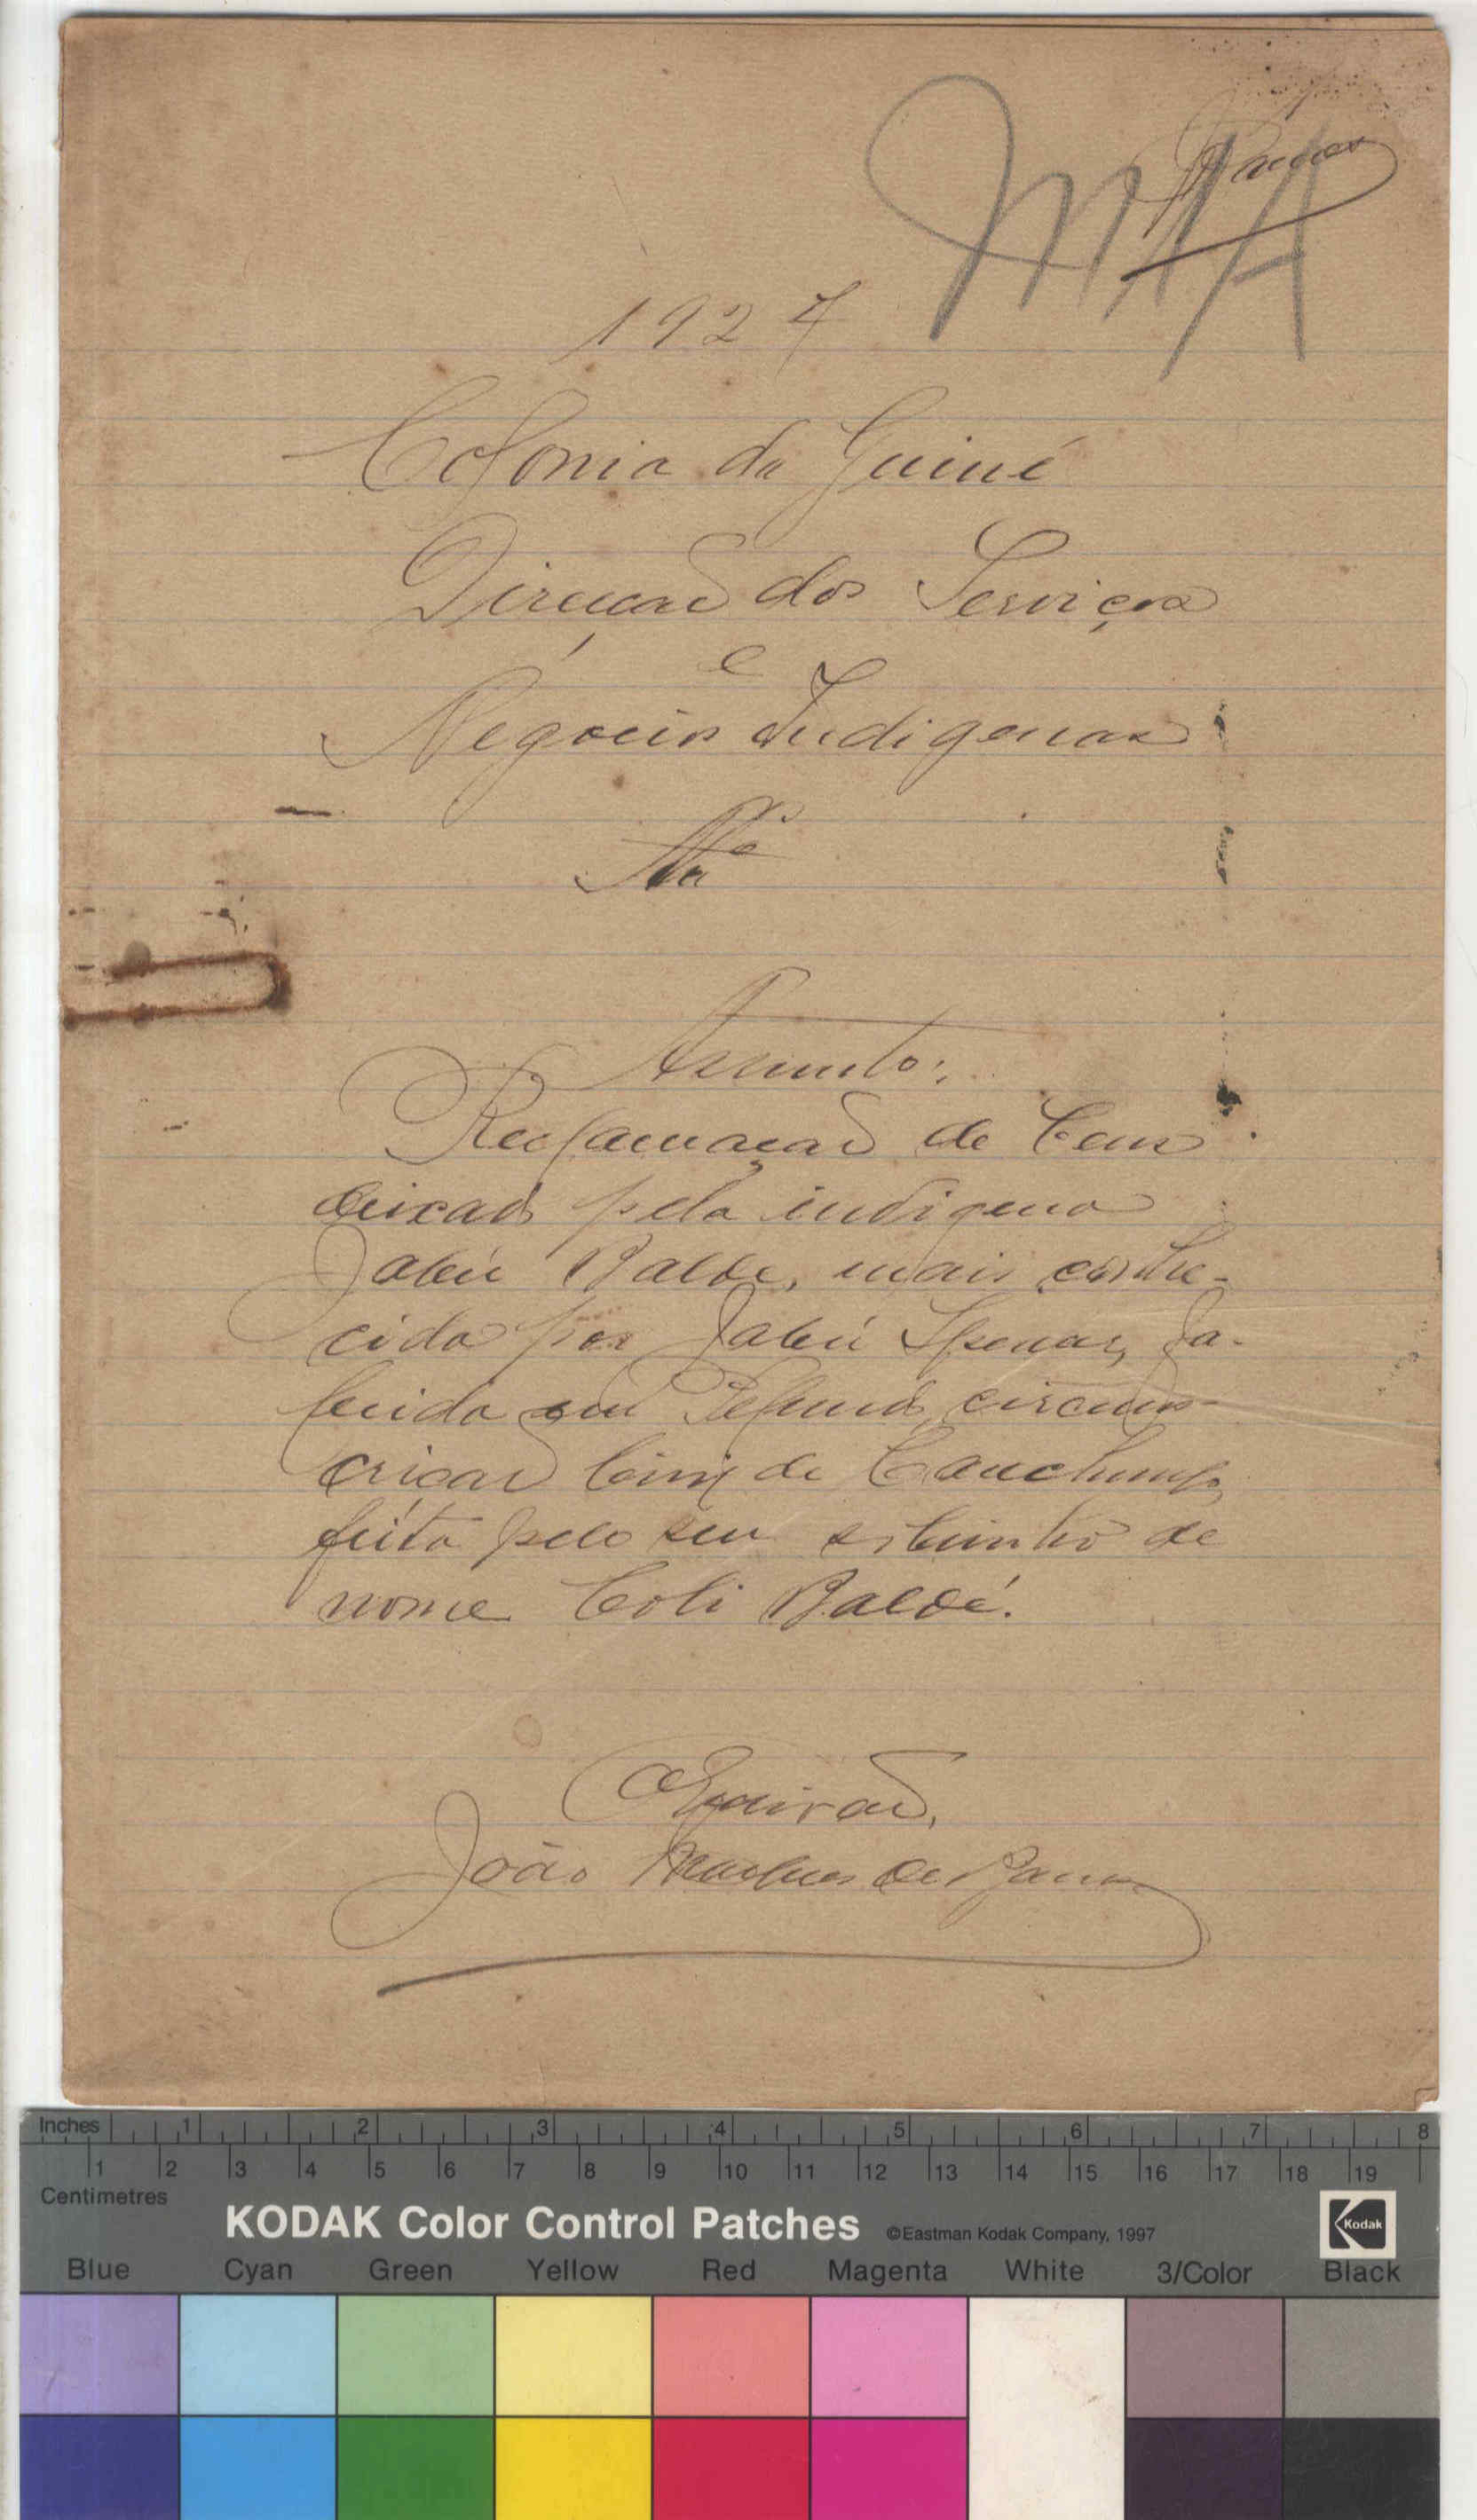 MAA
Ramos
1927
Colonia da Guiné
Direcção dos Serviços
e
Negocios Indigenas
Nº
Assunto:
Reclamação de bens
deixados pela indigena
Jabú Baldé, mais conhe-
cida por Jabú
fa-
lecida em circuns-
crição Civil de Canchungo,
feita pelo seu sobrinho de
nome Coli Baldé.
Escrivão,
João Marques de Barros
Inches 1 2 3 4 5 6 7 8
1 2 3 4 5 6 7 8 9 10 11 12 13 14 15 16 17 18 19
Centimetres
KODAK Color Control Patches ©Eastman Kodak Company, 1997 Kodak
Blue Cyan Green Yellow Red Magenta White 3/Color Black